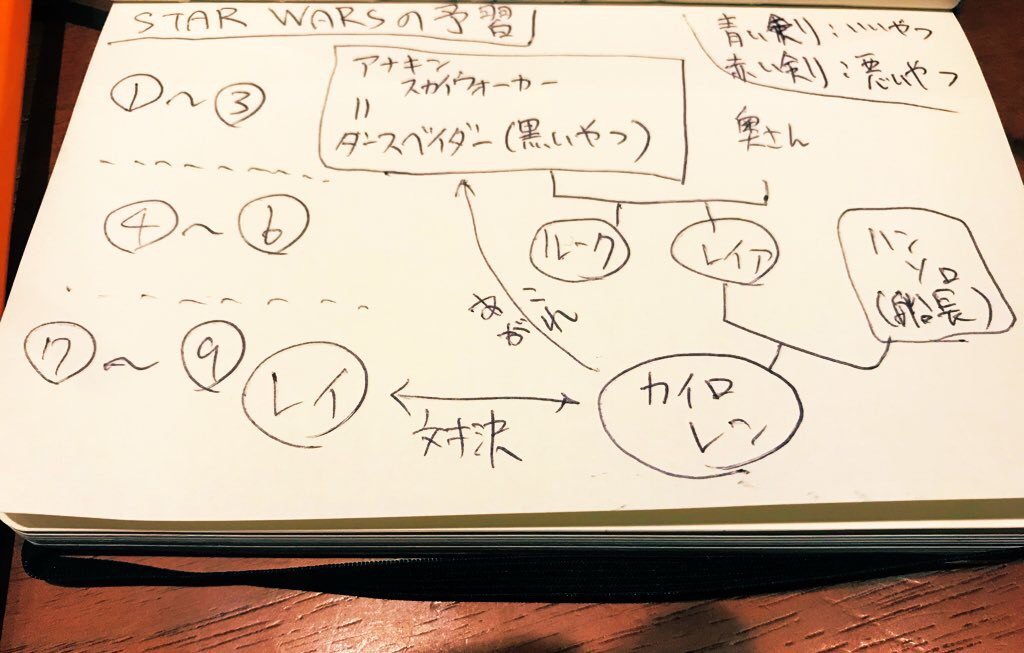 STAR WARSの予習
青い剣り：いいやつ
赤い剣り：悪いやつ
①〜③
アナキン
スカイウォーカー
=
ダースベイダー(黒いやつ)
奥さん
④〜⑥
ルーク
レイア
ハン
ソロ
(船長)
あこがれ
⑦〜⑨
レイ
対決
カイロ
レン